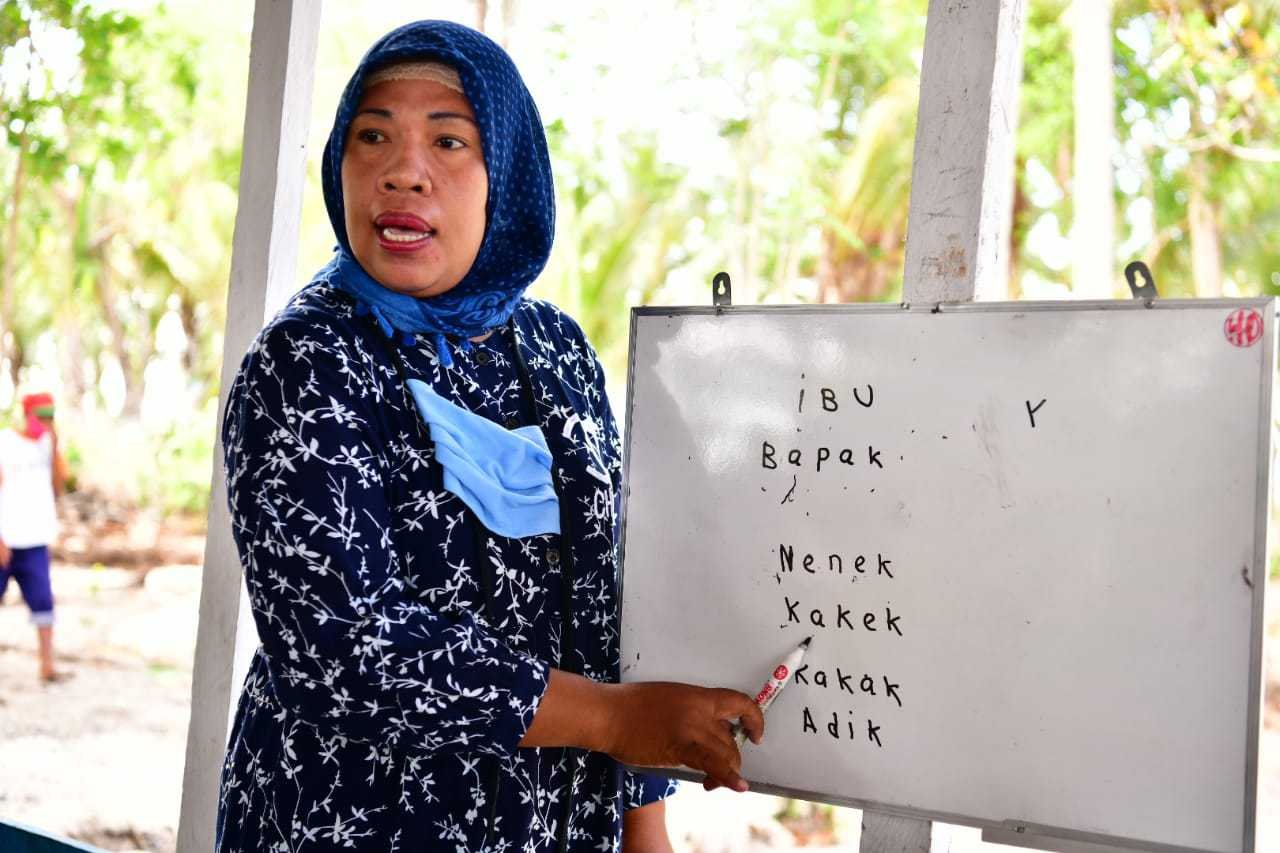 iBU
Y
Bapak
Nenek
Kakek
Kakak
Adik